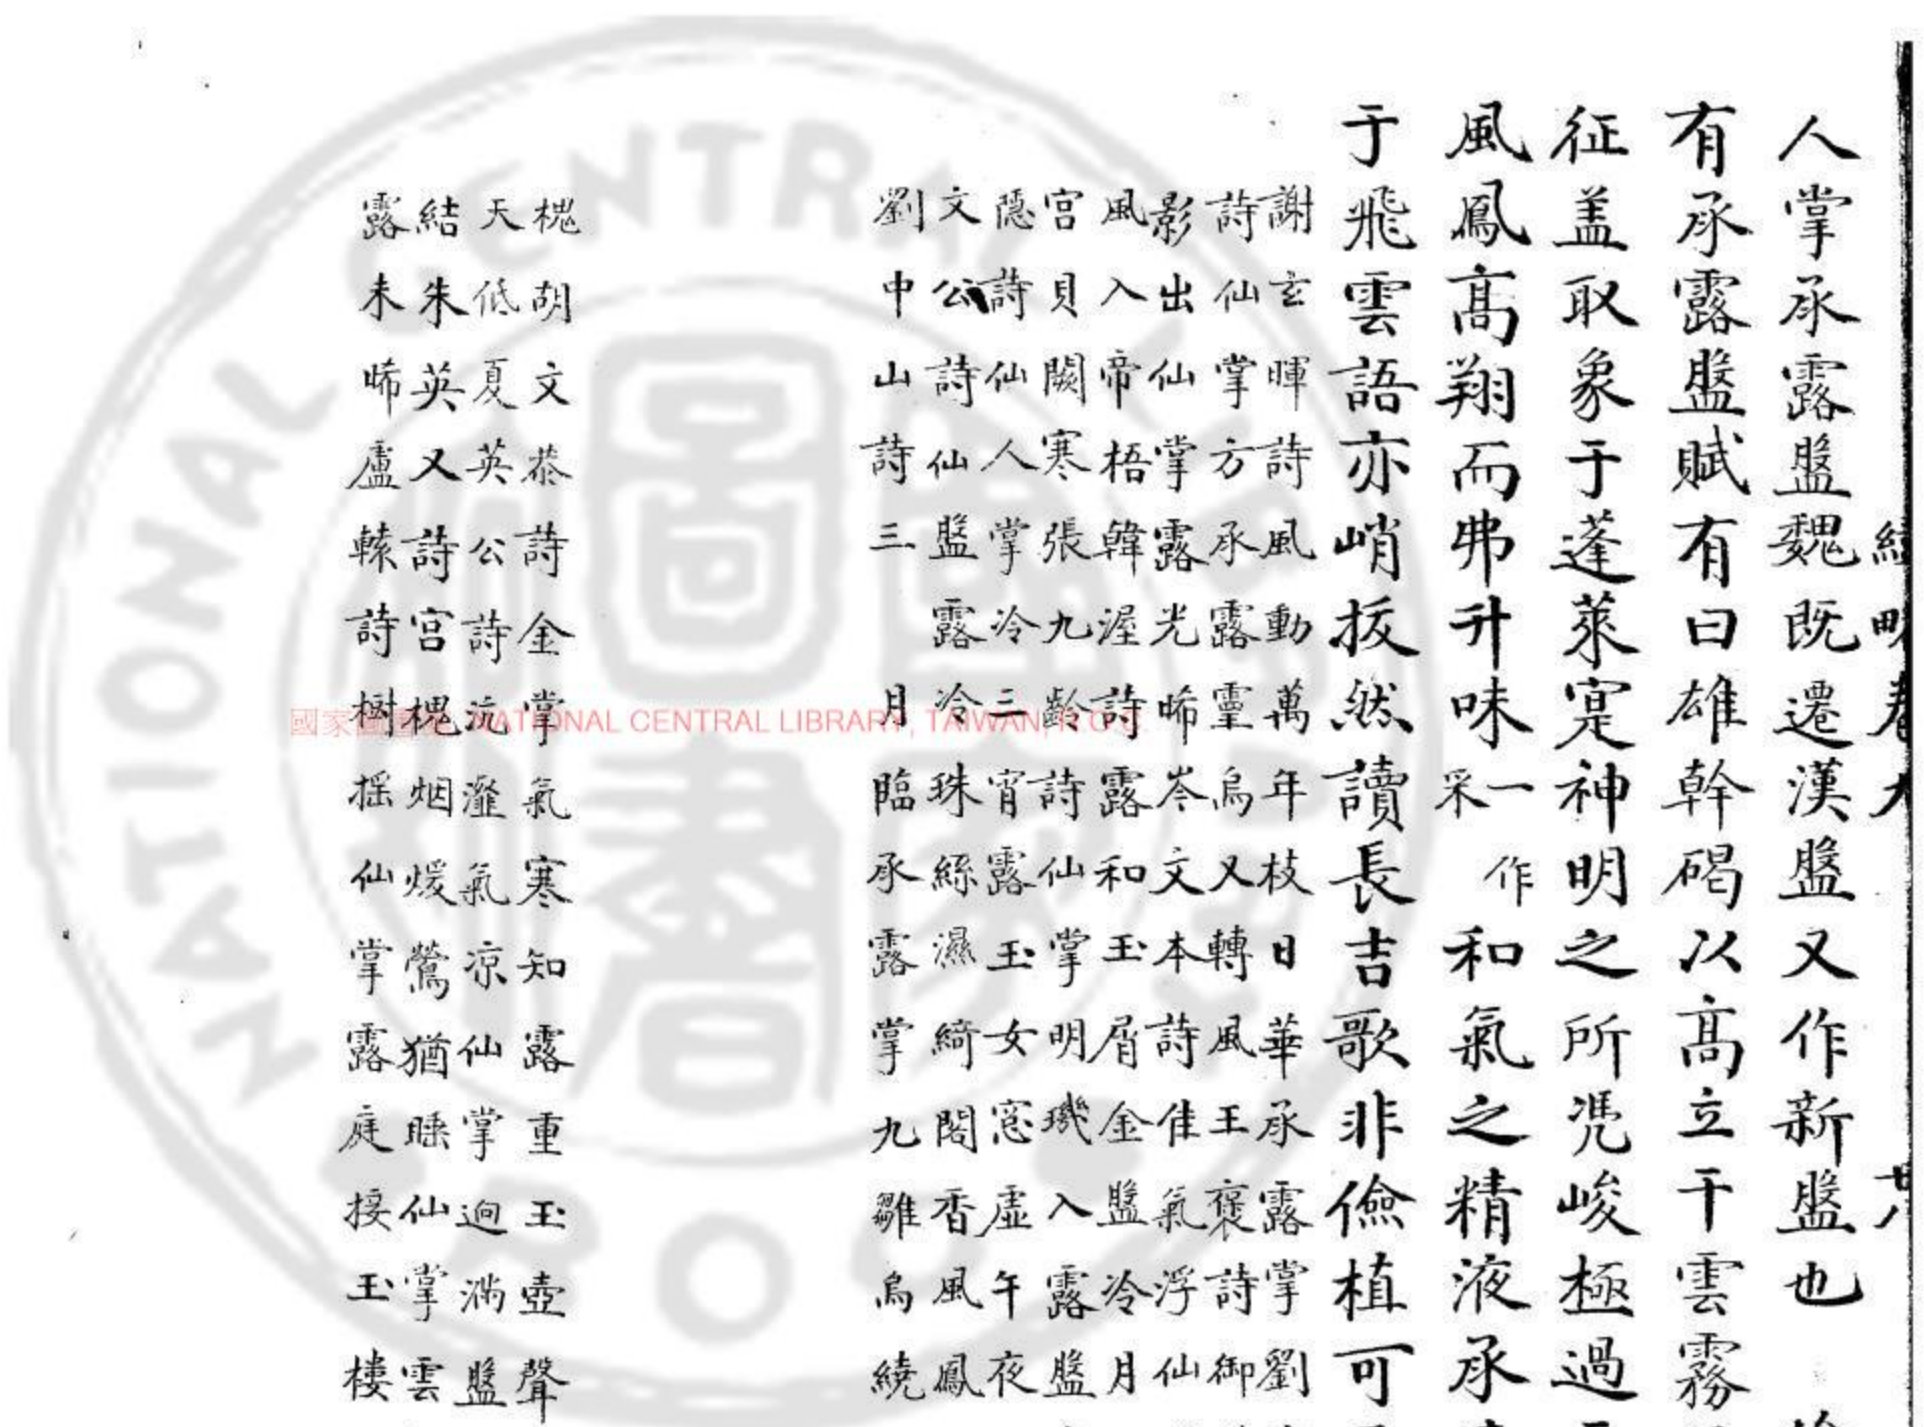 人掌承露盤魏既遷漢盤又作新盤也
有承露盤賦有曰雄幹碣以高立干雲霧
征盖取象于蓬萊寔神明之所凭峻極過
風鳳高翔而弗升味一作采和氣之精液承
于飛雲語亦峭拔然讀長吉歌非儉植可
謝玄暉詩風動萬年枝日華承露掌劉
詩仙掌方承露靈烏又轉風王褒詩御
影出仙掌露光晞岑文本詩佳氣浮仙
風入帝梧韓渥詩露和玉屑金盤冷月
宮貝闕寒張九齡詩仙掌明璣入露盤
隱詩仙人掌冷三宵露玉女窓虛午夜
文公詩仙盤露冷珠絲濕綺閣香風鳳
劉中山詩三月臨承露掌九雛烏繞
槐胡文恭詩金掌氣寒知露重玉壺聲
天低夏英公詩沆瀣氣凉仙掌逈滿盤
結朱英又詩宮槐烟煖鶯猶睡仙掌雲
露未晞盧轅詩樹摇仙掌露庭接玉樓
國家圖書館 NATIONAL CENTRAL LIBRARY, TAIWAN, R.O.C.
NATIONAL CENTRAL LIBRARY
R.O.C.